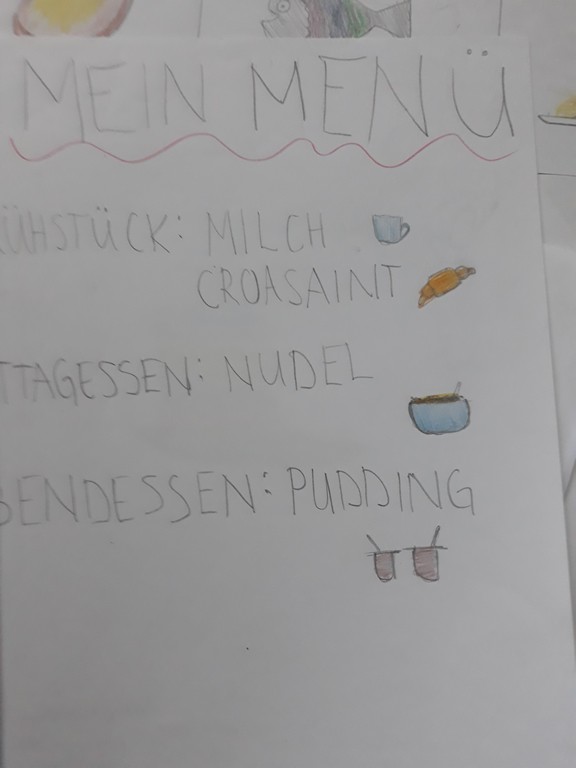 MEIN MENÜ
RÜHSTÜCK: MILCH
CROASAINT
TTAGESSEN: NUDEL
BENDESSEN: PUDDING